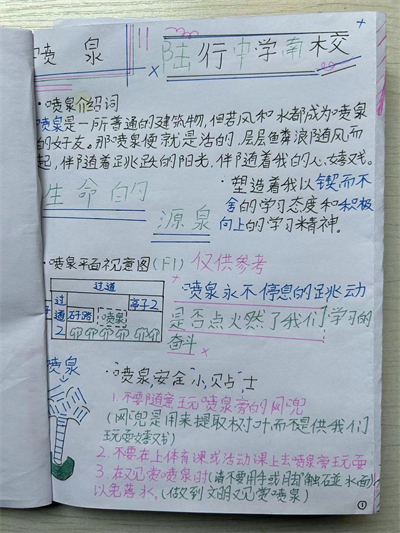 喷泉
陆行中学南校
·喷泉介绍词
喷泉是一所普通的建筑物,但若风和水都成为喷泉
的好友。那喷泉便就是活的,层层鳞浪随风而
起,伴随着跳跃的阳光,伴随着我的心嬉戏。
生命的
源泉
·塑造着我以锲而不
舍的学习态度和积极
向上的学习精神。
·喷泉平面视意图(F1) 仅供参考
过道
过道2
石子路
喷泉
亭子2
喷泉永不停息的跳动
是否点火然了我们学习的
奋斗
喷泉
·喷泉安全小贝占士
1.不要随意玩喷泉旁的网兜
(网兜是用来提取树叶而不是供我们
玩耍嬉戏)
2.不要在上体育课或活动课上去喷泉旁玩耍
3.在观赏喷泉时(请不要用手或脚触碰水面)
以免落水。(做到文明观赏喷泉)
①